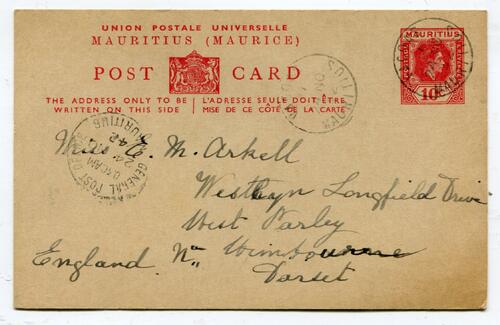 UNION POSTALE UNIVERSELLE
MAURITIUS (MAURICE)
POST CARD
THE ADDRESS ONLY TO BE WRITTEN ON THIS SIDE
L'ADRESSE SEULE DOIT ÊTRE MISE DE CE CÔTÉ DE LA CARTE
MAURITIUS
10
SOUILLAC
MAURITIUS
GENERAL POST OFFICE
MAURITIUS
Miss E. M. Arkell
Westleyn Longfield Drive
West Parley
Nr Wimbourne
England. Dorset